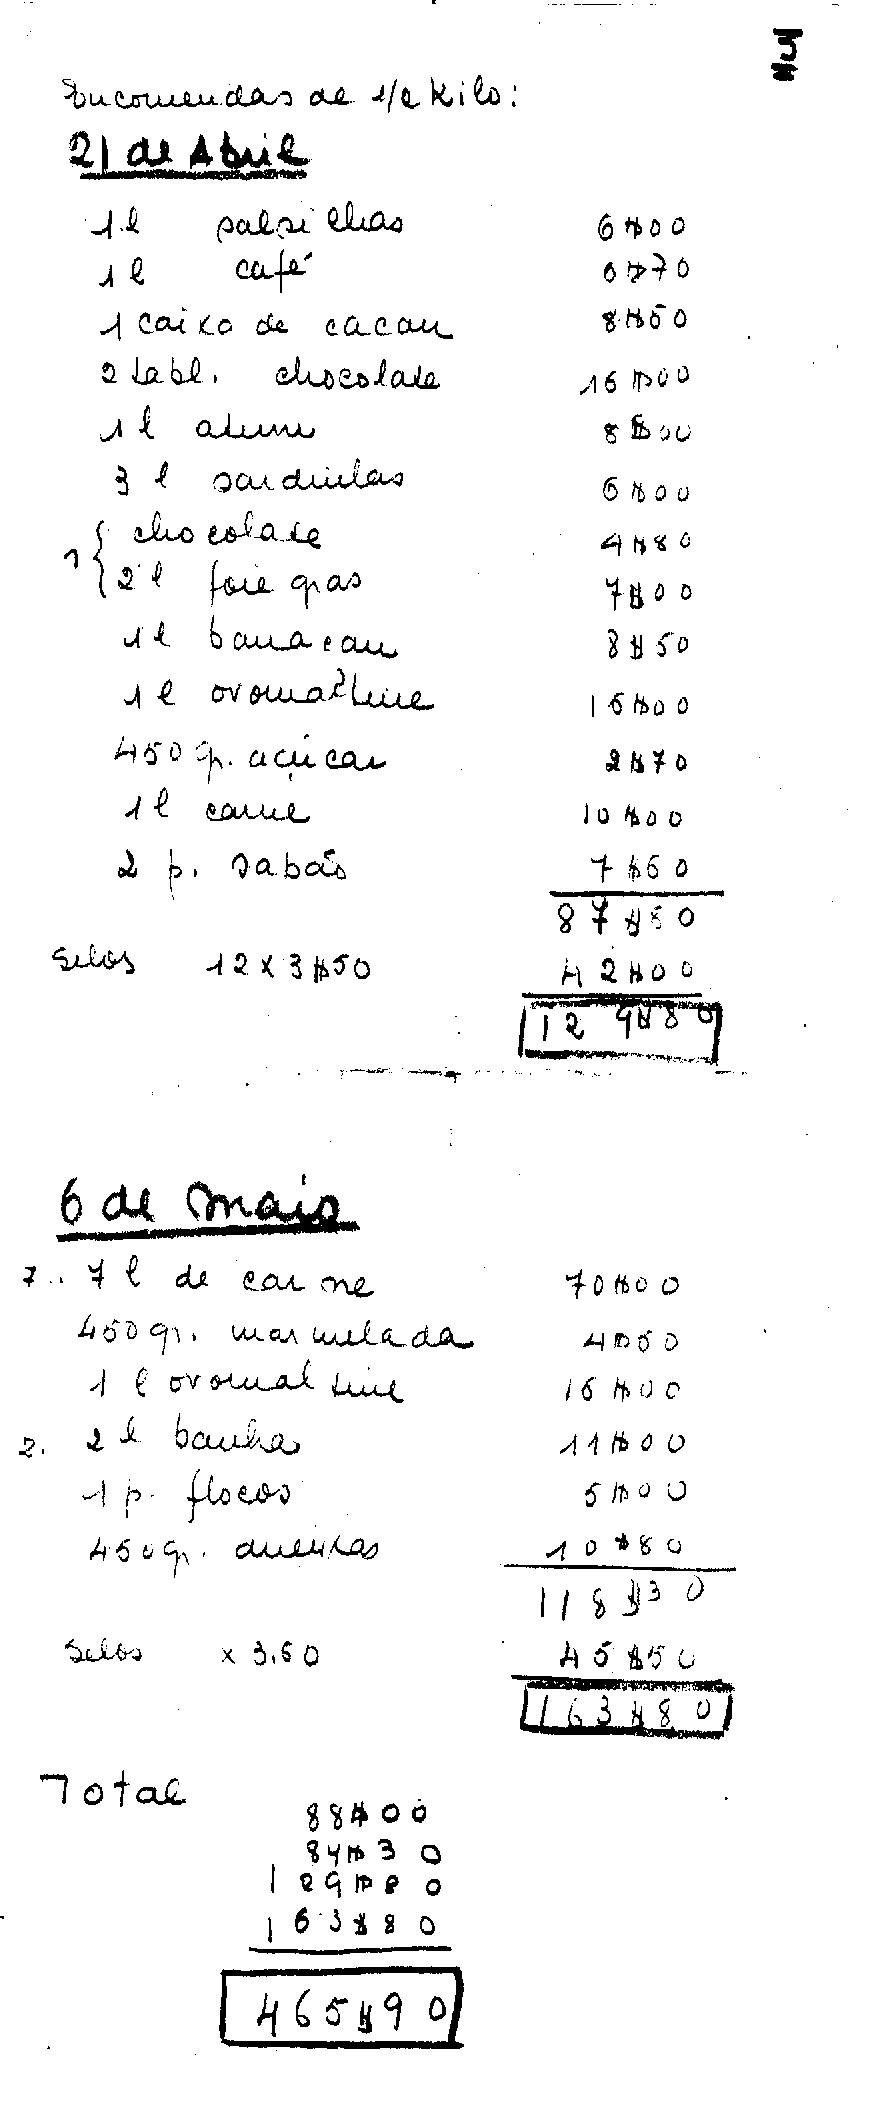 Encomendas de 1/2 Kilo:
21 de Abril
1 l salsichas 6$00
1 l café 6$70
1 caixa de cacau 8$50
2 tabl. chocolate 16$00
1 l atum 8$00
3 l sardinhas 6$00
chocolate 4$80
1 { 2 l foie gras 7$00
1 l banacau 8$50
1 l ovomaltine 16$00
450 gr. açúcar 2$70
1 l carne 10$00
2 p. sabão 7$60
87$80
Selos 12 x 3$50 42$00
129$80
6 de Maio
7.. 7 l de carne 70$00
450 gr. marmelada 4$50
1 l ovomaltine 16$00
2. 2 l banha 11$00
1 p. flocos 5$00
450 gr. 10$80
118$30
Selos x 3.50 45$50
163$80
Total
88$00
84$30
129$80
163$80
465$90